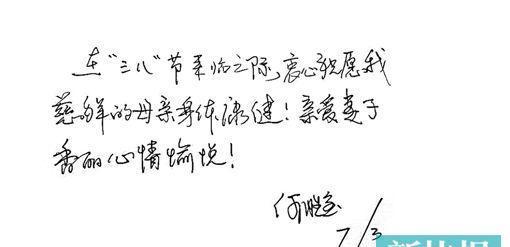 在“三八”节来临之际，衷心祝愿我
慈祥的母亲身体康健！亲爱妻子
秀丽心情愉悦！
何胜宝
7/3
新快报